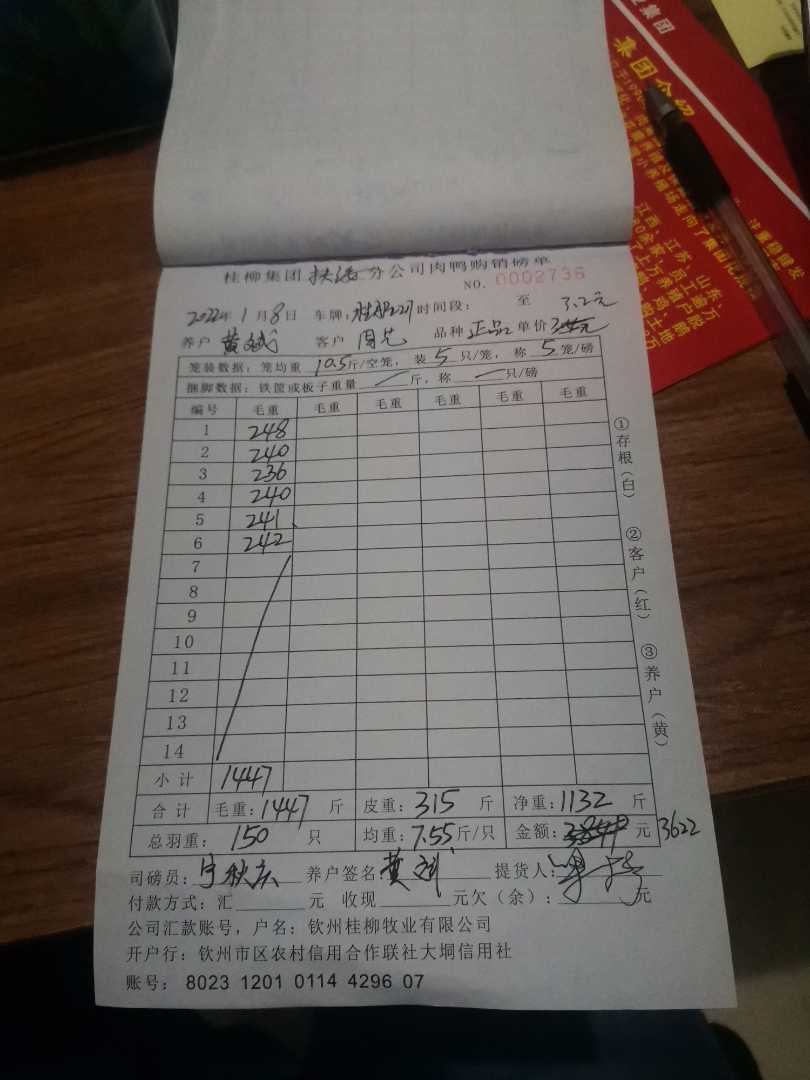 集团
集团介绍
桂柳集团 分公司肉鸭购销磅单
NO. 0002736
2022年 1月8日 车牌: 桂 227 时间段: 至 3.2元
养户 黄 客户 周 品种 正品 单价
笼装数据: 笼均重 10.5斤/空笼, 装 5 只/笼, 称 5 笼/磅
捆脚数据: 铁筐或板子重量 斤, 称 只/磅
编号 毛重 毛重 毛重 毛重 毛重 毛重
1 248
2 240
3 236
4 240
5 241
6 242
7
8
9
10
11
12
13
14
小计 1447
合计 毛重: 1447 斤 皮重: 315 斤 净重: 1132 斤
总羽重: 150 只 均重: 7.55斤/只 金额: 元 3622
司磅员: 养户签名 黄 提货人:
付款方式: 汇 元 收现 元欠(余): 元
公司汇款账号, 户名: 钦州桂柳牧业有限公司
开户行: 钦州市区农村信用合作联社大垌信用社
账号: 8023 1201 0114 4296 07
①存根(白)
②客户(红)
③养户(黄)